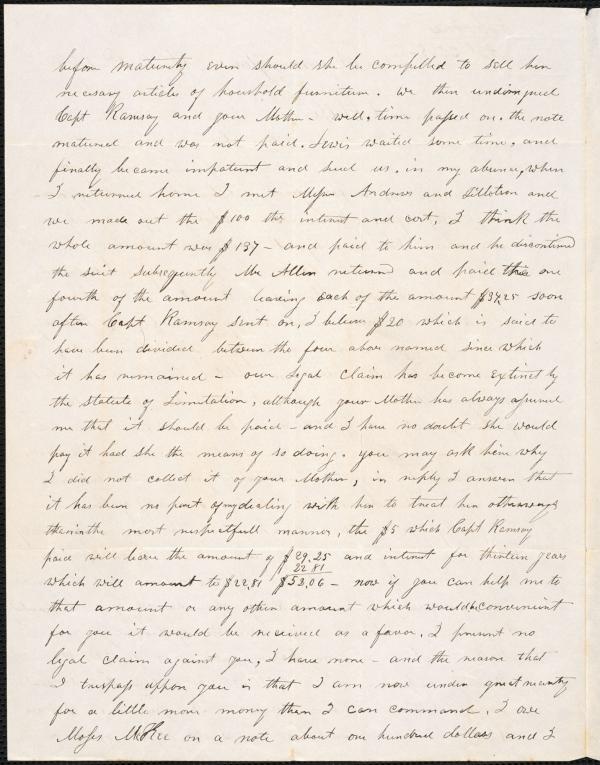 before maturity even should she be compelled to sell her
necisary articles of household furniture. we then undersigned
Capt Ramsay and your Mother - well, time passed on. the note
matured and was not paid. Lewis waited some time, and
finally became impatient and sued us. in my absence, when
I returned home I met Messrs Andrews and Tillotson and
we made out the $100 the interest and cost, I think the
whole amount was $137 - and paid to him and he discontinued
the suit Subsequently Mr Allen returned and paid the one
fourth of the amount leaving each of the amount $34,25 soon
after Capt Ramsay sent on, I believe $20 which is said to
have been divided between the four above named since which
it has remained - our Legal Claim has become extinct by
the Statute of Limitation, although your Mother has always asured
me that it should be paid - and I have no doubt she would
pay it had she the means of so doing. you may ask here why
I did not collect it of your Mother, in reply I answer that
it has been no part of my dealing with her to treat her otherways
than in the most respectfull manner, the $5 which Capt Ramsay
paid will leave the amount of $29,25 and interest for thirteen years
22 81
which will amount to $22,81 $53,06 - now if you can help me to
that amount or any other amount which would be convenient
for you it would be received as a favor. I present no
legal claim against you, I have none - and the reason that
I trespass uppon you is that I am now under great necessity
for a little more money than I can command. I owe
Moses McKee on a note about one hundred dollars and I